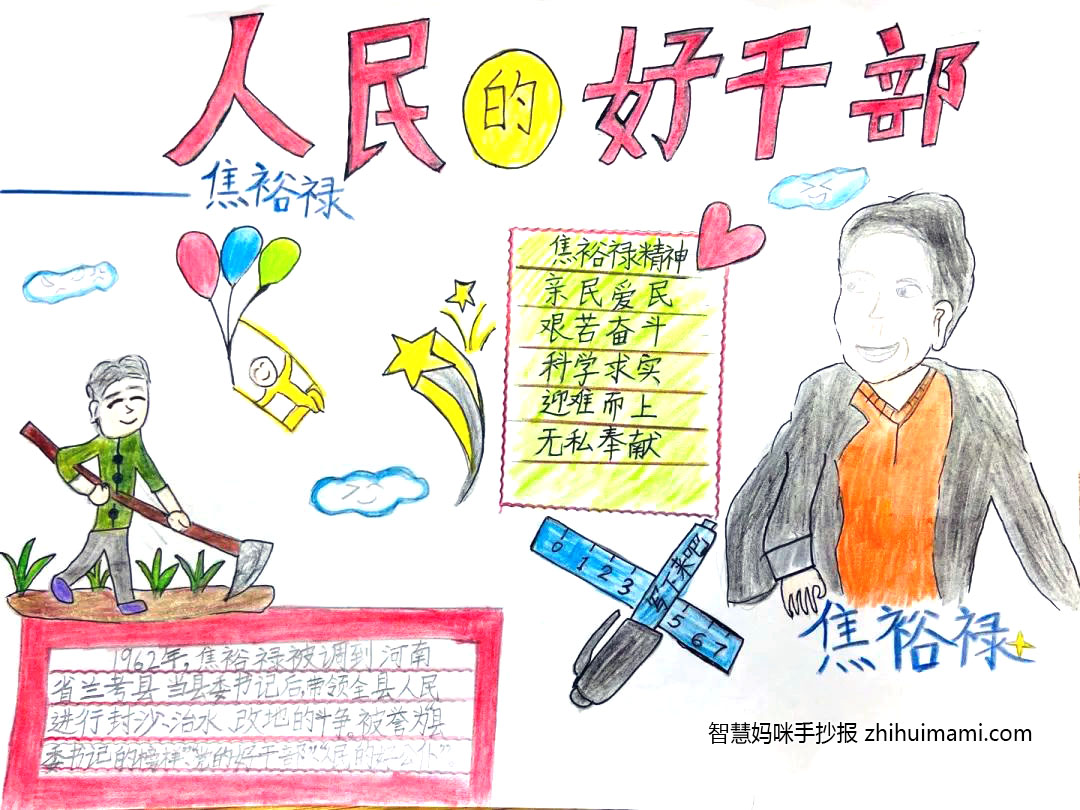 人民的好干部
焦裕禄
焦裕禄精神
亲民爱民
艰苦奋斗
科学求实
迎难而上
无私奉献
0 1 2 3 5 6 7
写下来吧
焦裕禄
1962年,焦裕禄被调到河南
省兰考县当县委书记后,带领全县人民
进行封沙、治水、改地的斗争。被誉为"县
委书记的榜样""党的好干部""人民的好公仆"。
智慧妈咪手抄报 zhihuimami.com